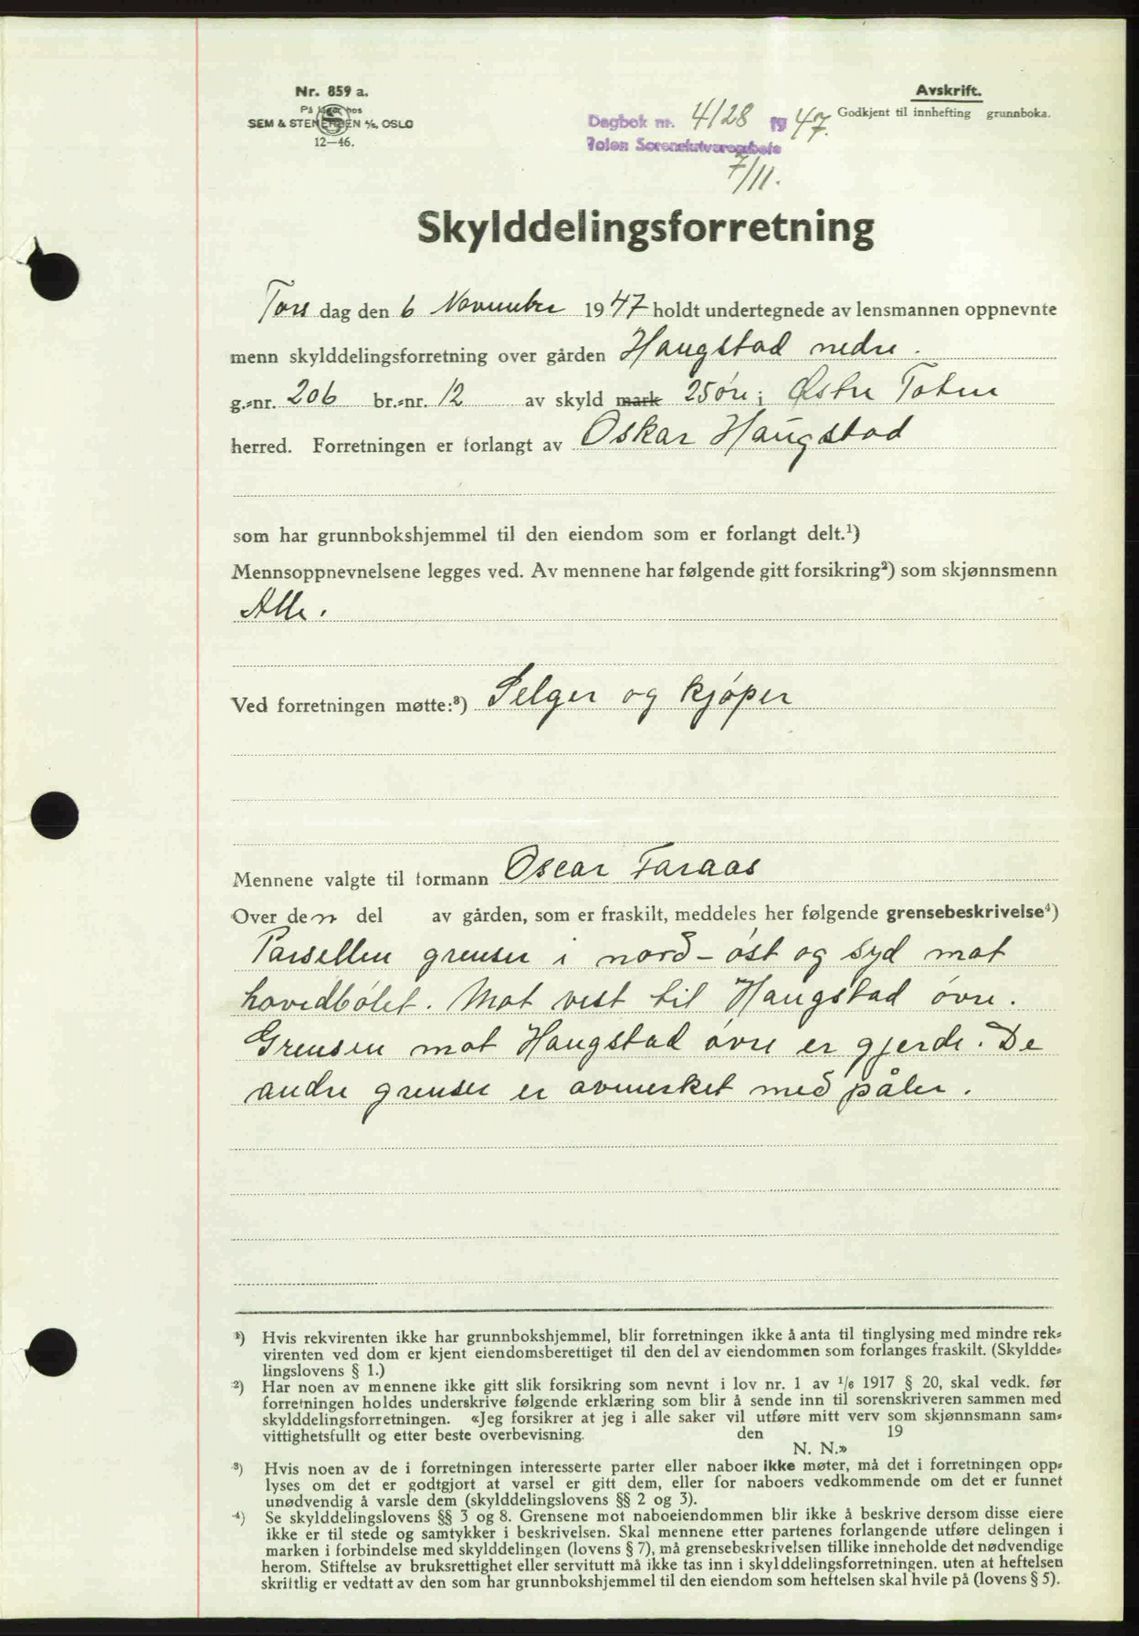 Nr. 859 a.
På lager hos
SEM & STENERSEN A/S, OSLO
12—46.
Dagbok nr. 4128 19 47.
Toten Sorenskriverembete
7/11.
Avskrift.
Godkjent til innhefting grunnboka.
Skylddelingsforretning
Tors dag den 6 November 1947 holdt undertegnede av lensmannen oppnevnte
menn skylddelingsforretning over gården Haugstad nedre.
g.-nr. 206 br.-nr. 12 av skyld mark 25 øre i Østre Toten
herred. Forretningen er forlangt av Oskar Haugstad
som har grunnbokshjemmel til den eiendom som er forlangt delt.¹)
Mennsoppnevnelsene legges ved. Av mennene har følgende gitt forsikring²) som skjønnsmenn
Alle.
Ved forretningen møtte:³) Selger og kjøper
Mennene valgte til formann Oscar Faraas
Over den del av gården, som er fraskilt, meddeles her følgende grensebeskrivelse⁴)
Parsellen grenser i nord-øst og syd mot
hovedbølet. Mot vest til Haugstad øvre.
Grensen mot Haugstad øvre er gjerde. De
andre grenser er avmerket med påler.
¹) Hvis rekvirenten ikke har grunnbokshjemmel, blir forretningen ikke å anta til tinglysing med mindre rek-
virenten ved dom er kjent eiendomsberettiget til den del av eiendommen som forlanges fraskilt. (Skyldde-
lingslovens § 1.)
²) Har noen av mennene ikke gitt slik forsikring som nevnt i lov nr. 1 av 1/6 1917 § 20, skal vedk. før
forretningen holdes underskrive følgende erklæring som blir å sende inn til sorenskriveren sammen med
skylddelingsforretningen. «Jeg forsikrer at jeg i alle saker vil utføre mitt verv som skjønnsmann sam-
vittighetsfullt og etter beste overbevisning. den 19
N. N.»
³) Hvis noen av de i forretningen interesserte parter eller naboer ikke møter, må det i forretningen opp-
lyses om det er godtgjort at varsel er gitt dem, eller for naboers vedkommende om det er funnet
unødvendig å varsle dem (skylddelingslovens §§ 2 og 3).
⁴) Se skylddelingslovens §§ 3 og 8. Grensene mot naboeiendommen blir ikke å beskrive dersom disse eiere
ikke er til stede og samtykker i beskrivelsen. Skal mennene etter partenes forlangende utføre delingen i
marken i forbindelse med skylddelingen (lovens § 7), må grensebeskrivelsen tillike inneholde det nødvendige
herom. Stiftelse av bruksrettighet eller servitutt må ikke tas inn i skylddelingsforretningen. uten at heftelsen
skriftlig er vedtatt av den som har grunnbokshjemmel til den eiendom som heftelsen skal hvile på (lovens § 5).